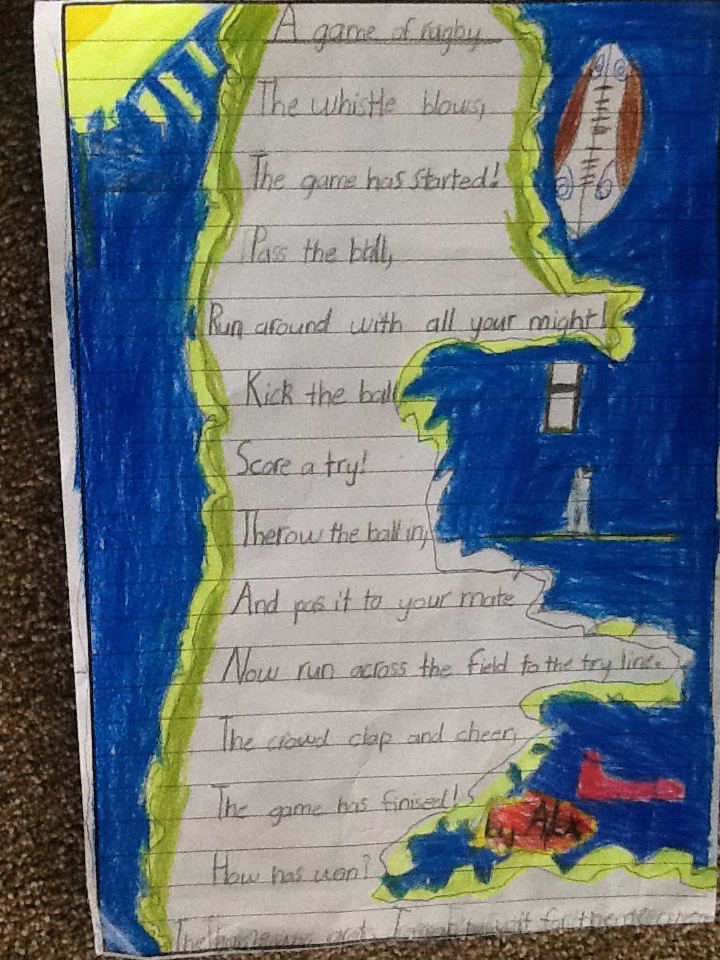 A game of rugby
The whistle blows,
The game has started!
Pass the ball,
Run around with all your might!
Kick the ball
Score a try!
Therow the ball in,
And pas it to your mate
Now run across the field to the try line.
The crowd clap and cheer,
The game has finised!
How has won?
by Alex
for the